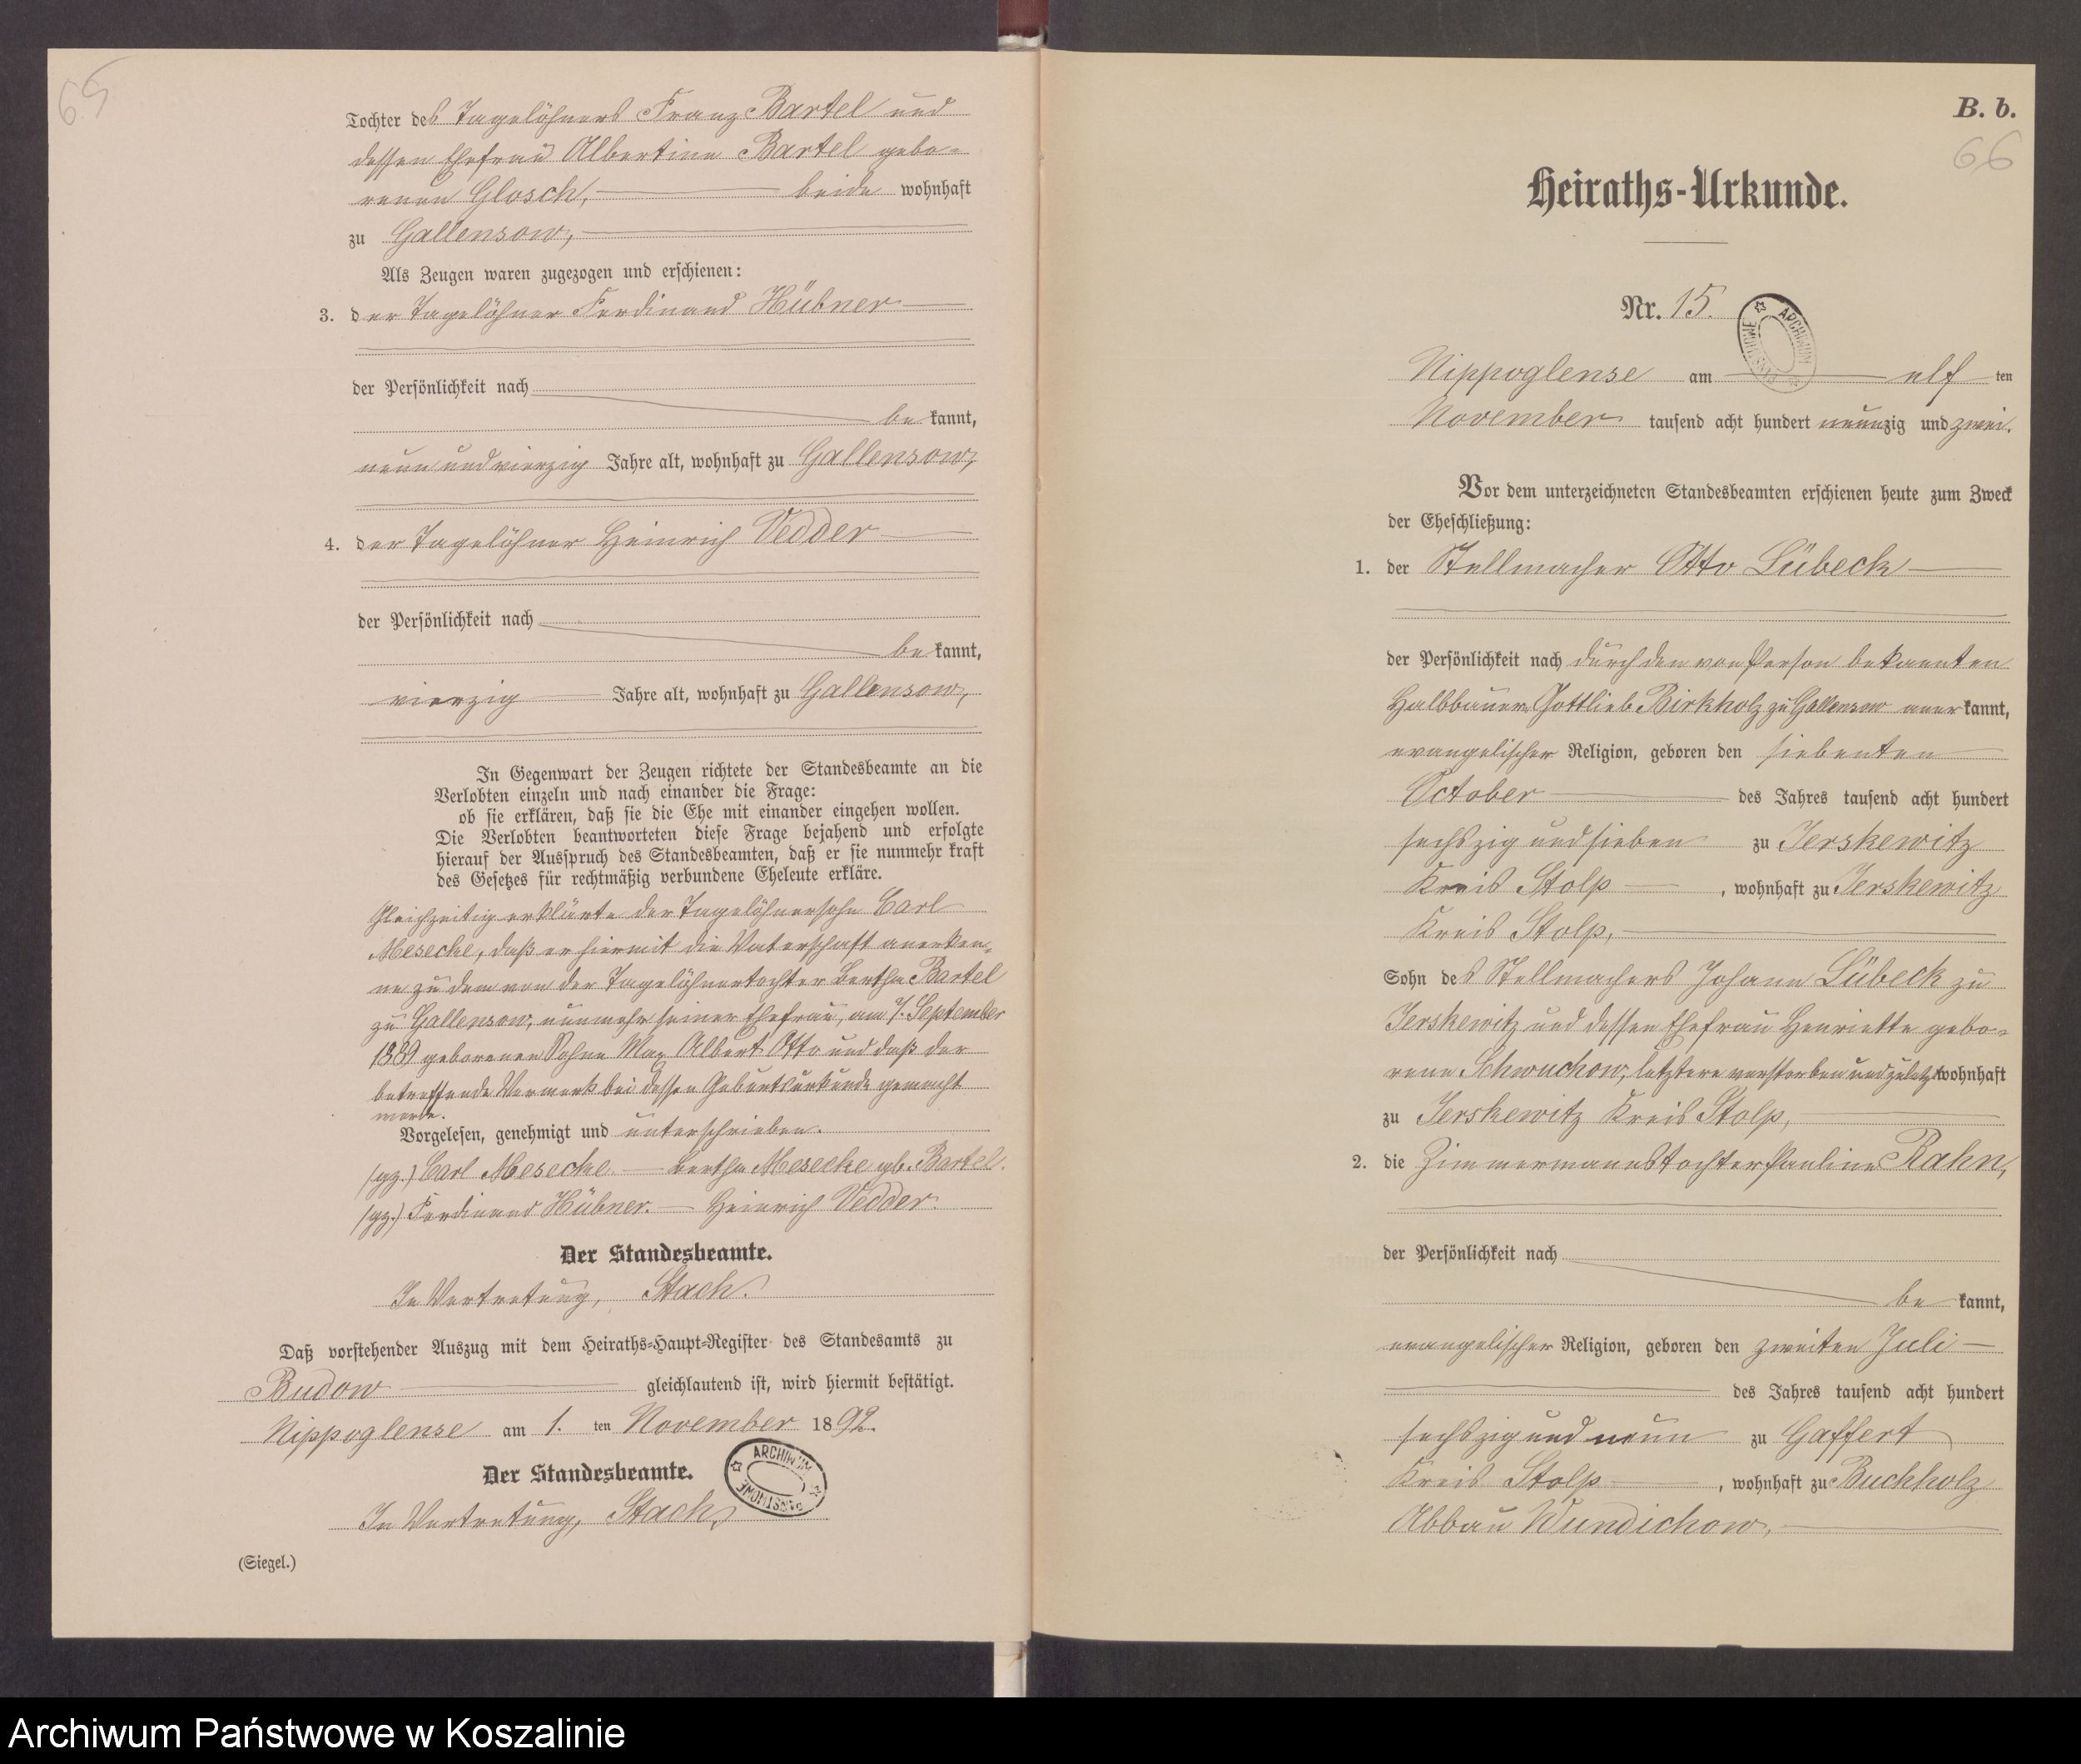 65
Tochter des Tagelöhners Franz Bartel und
dessen Ehefrau Albertine Bartel gebo-
renen Glosch, beide wohnhaft
zu Gallensow,
Als Zeugen waren zugezogen und erschienen:
3. der Tagelöhner Ferdinand Hübner
der Persönlichkeit nach
be kannt,
neun und vierzig Jahre alt, wohnhaft zu Gallensow,
4. der Tagelöhner Heinrich Vedder
der Persönlichkeit nach
be kannt,
vierzig Jahre alt, wohnhaft zu Gallensow,
In Gegenwart der Zeugen richtete der Standesbeamte an die
Verlobten einzeln und nach einander die Frage:
ob sie erklären, daß sie die Ehe mit einander eingehen wollen.
Die Verlobten beantworteten diese Frage bejahend und erfolgte
hierauf der Ausspruch des Standesbeamten, daß er sie nunmehr kraft
des Gesetzes für rechtmäßig verbundene Eheleute erkläre.
Gleichzeitig erklärte der Tagelöhnersohn Carl
Mesecke, daß er hiermit die Vaterschaft anerken-
ne zu dem von der Tagelöhnertochter Bertha Bartel
zu Gallensow, nunmehr seiner Ehefrau, am 7. September
1889 geborenen Sohne Max Albert Otto und daß der
betreffende Vermerk bei dessen Geburtsurkunde gemacht
werde.
Vorgelesen, genehmigt und unterschrieben.
(gz.) Carl Mesecke. — Bertha Mesecke gb. Bartel.
(gz.) Ferdinand Hübner. — Heinrich Vedder.
Der Standesbeamte.
In Vertretung, Stach.
Daß vorstehender Auszug mit dem Heiraths-Haupt-Register des Standesamts zu
Budow gleichlautend ist, wird hiermit bestätigt.
Nippoglense am 1. ten November 1892.
Der Standesbeamte.
In Vertretung, Stach.
ARCHIWUM PAŃSTWOWE
(Siegel.)
B. b.
66
Heiraths-Urkunde.
Nr. 15.
ARCHIWUM PAŃSTWOWE
Nippoglense am elf ten
November tausend acht hundert neunzig und zwei.
Vor dem unterzeichneten Standesbeamten erschienen heute zum Zweck
der Eheschließung:
1. der Stellmacher Otto Lübeck
der Persönlichkeit nach durch den von Person bekannten
Halbbauern Gottlieb Birkholz zu Gallensow aner kannt,
evangelischer Religion, geboren den siebenten
October des Jahres tausend acht hundert
sechszig und sieben zu Jerskewitz
Kreis Stolp, wohnhaft zu Jerskewitz
Kreis Stolp,
Sohn des Stellmachers Johann Lübeck zu
Jerskewitz und dessen Ehefrau Henriette gebo-
rene Schwuchow, letztere verstorben und zuletzt wohnhaft
zu Jerskewitz Kreis Stolp,
2. die Zimmermannstochter Pauline Rahn,
der Persönlichkeit nach
be kannt,
evangelischer Religion, geboren den zweiten Juli
des Jahres tausend acht hundert
sechszig und neun zu Gaffert
Kreis Stolp, wohnhaft zu Buchholz
Abbau Wundichow,
Archiwum Państwowe w Koszalinie